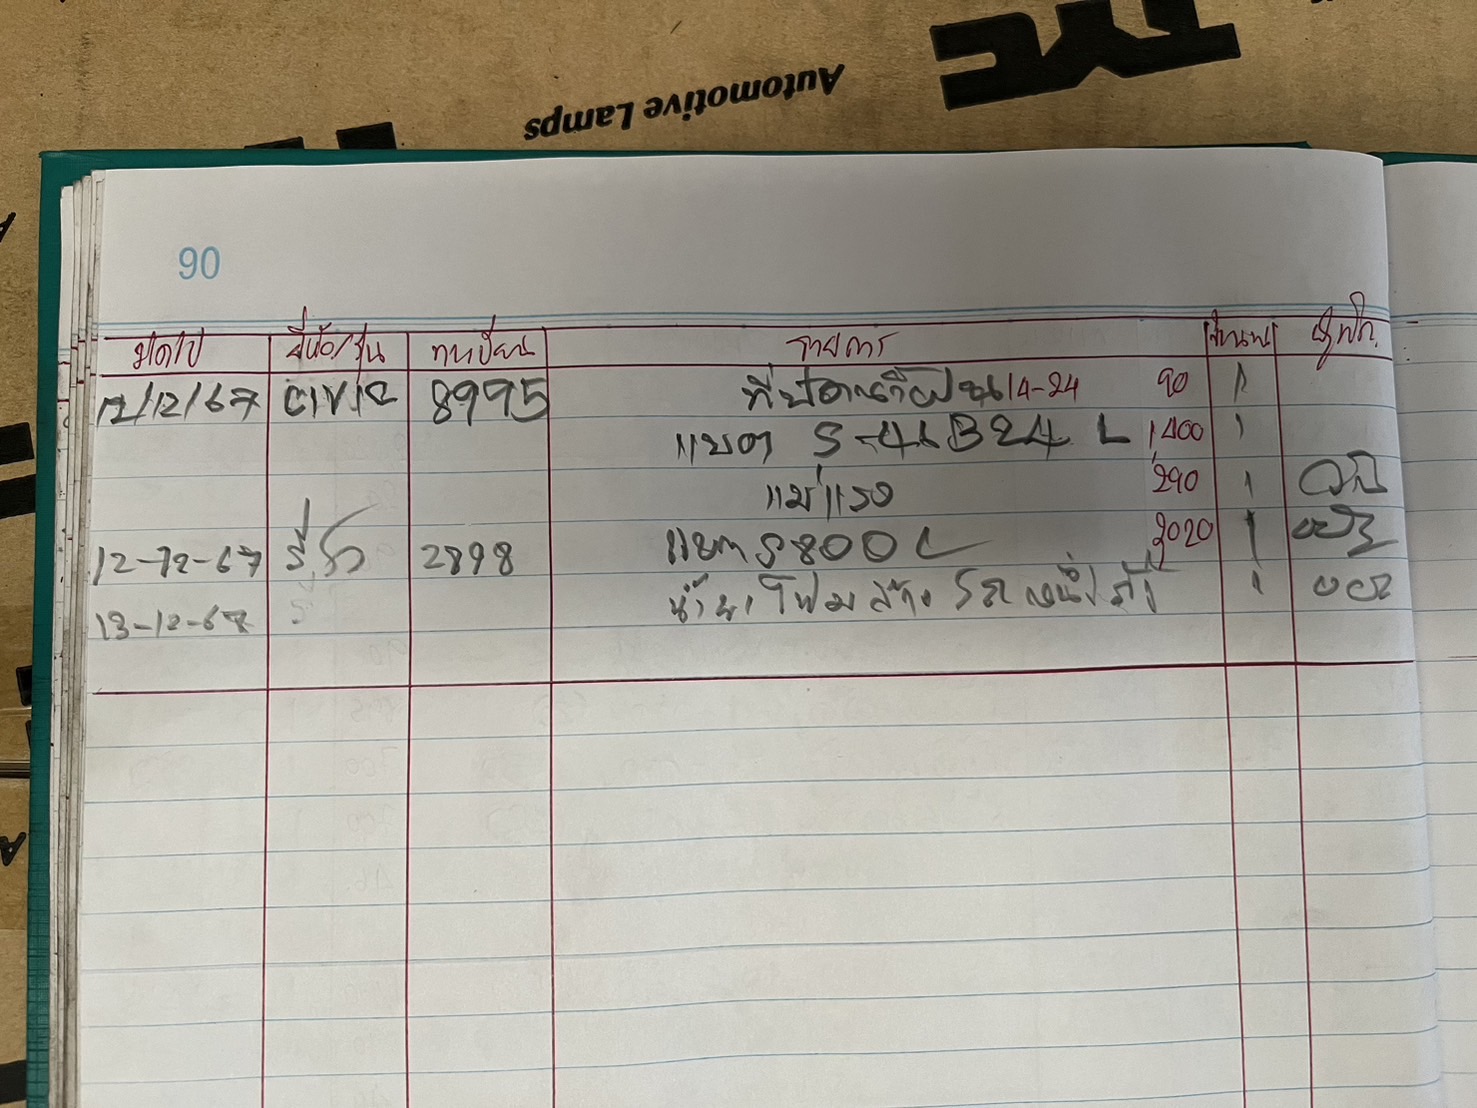 TYC
Automotive Lamps
90
ว/ด/ป ยี่ห้อ/รุ่น ทะเบียน รายการ จำนวน ผู้เบิก
12/12/67 CIVIC 8995 ที่ปัดน้ำฝน 14-24 90 1
แบต S-46B24 L 1,400 1
แม่แรง 290 1
12-12-67 รีโว่ 2898 แบต S 800 L 2020 1
13-12-67 น้ำยาโฟมล้างรถ 1